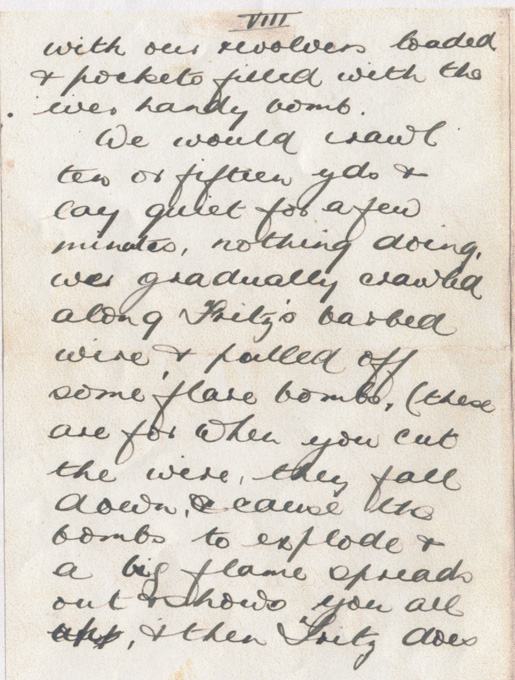 VIII
with our revolvers loaded
& pockets filled with the
ever handy bomb.
We would crawl
ten or fifteen yds &
lay quiet for a few
minutes, nothing doing,
we gradually crawled
along Fritz's barbed
wire, & pulled off
some flare bombs, (these
are for when you cut
the wire, they fall
down, & cause the
bombs to explode &
a big flame spreads
out & shows you all
up, & then Fritz does